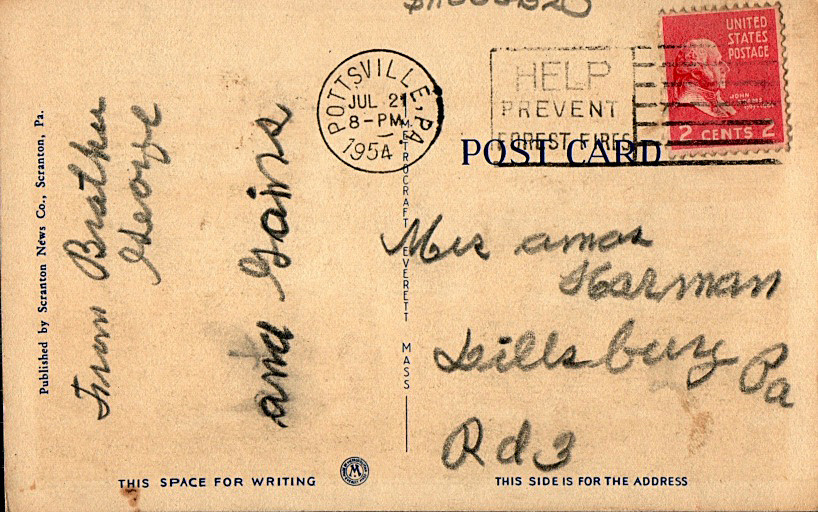 UNITED
STATES
POSTAGE
JOHN
2 CENTS 2
POTTSVILLE, PA.
JUL 21
8-PM
1954
HELP
PREVENT
FOREST FIRES
POST CARD
Published by Scranton News Co., Scranton, Pa.
From Brother
George
and
METROCRAFT EVERETT MASS
Mrs amos
Harman
Dillsburg Pa
Rd 3
THIS SPACE FOR WRITING
THIS SIDE IS FOR THE ADDRESS